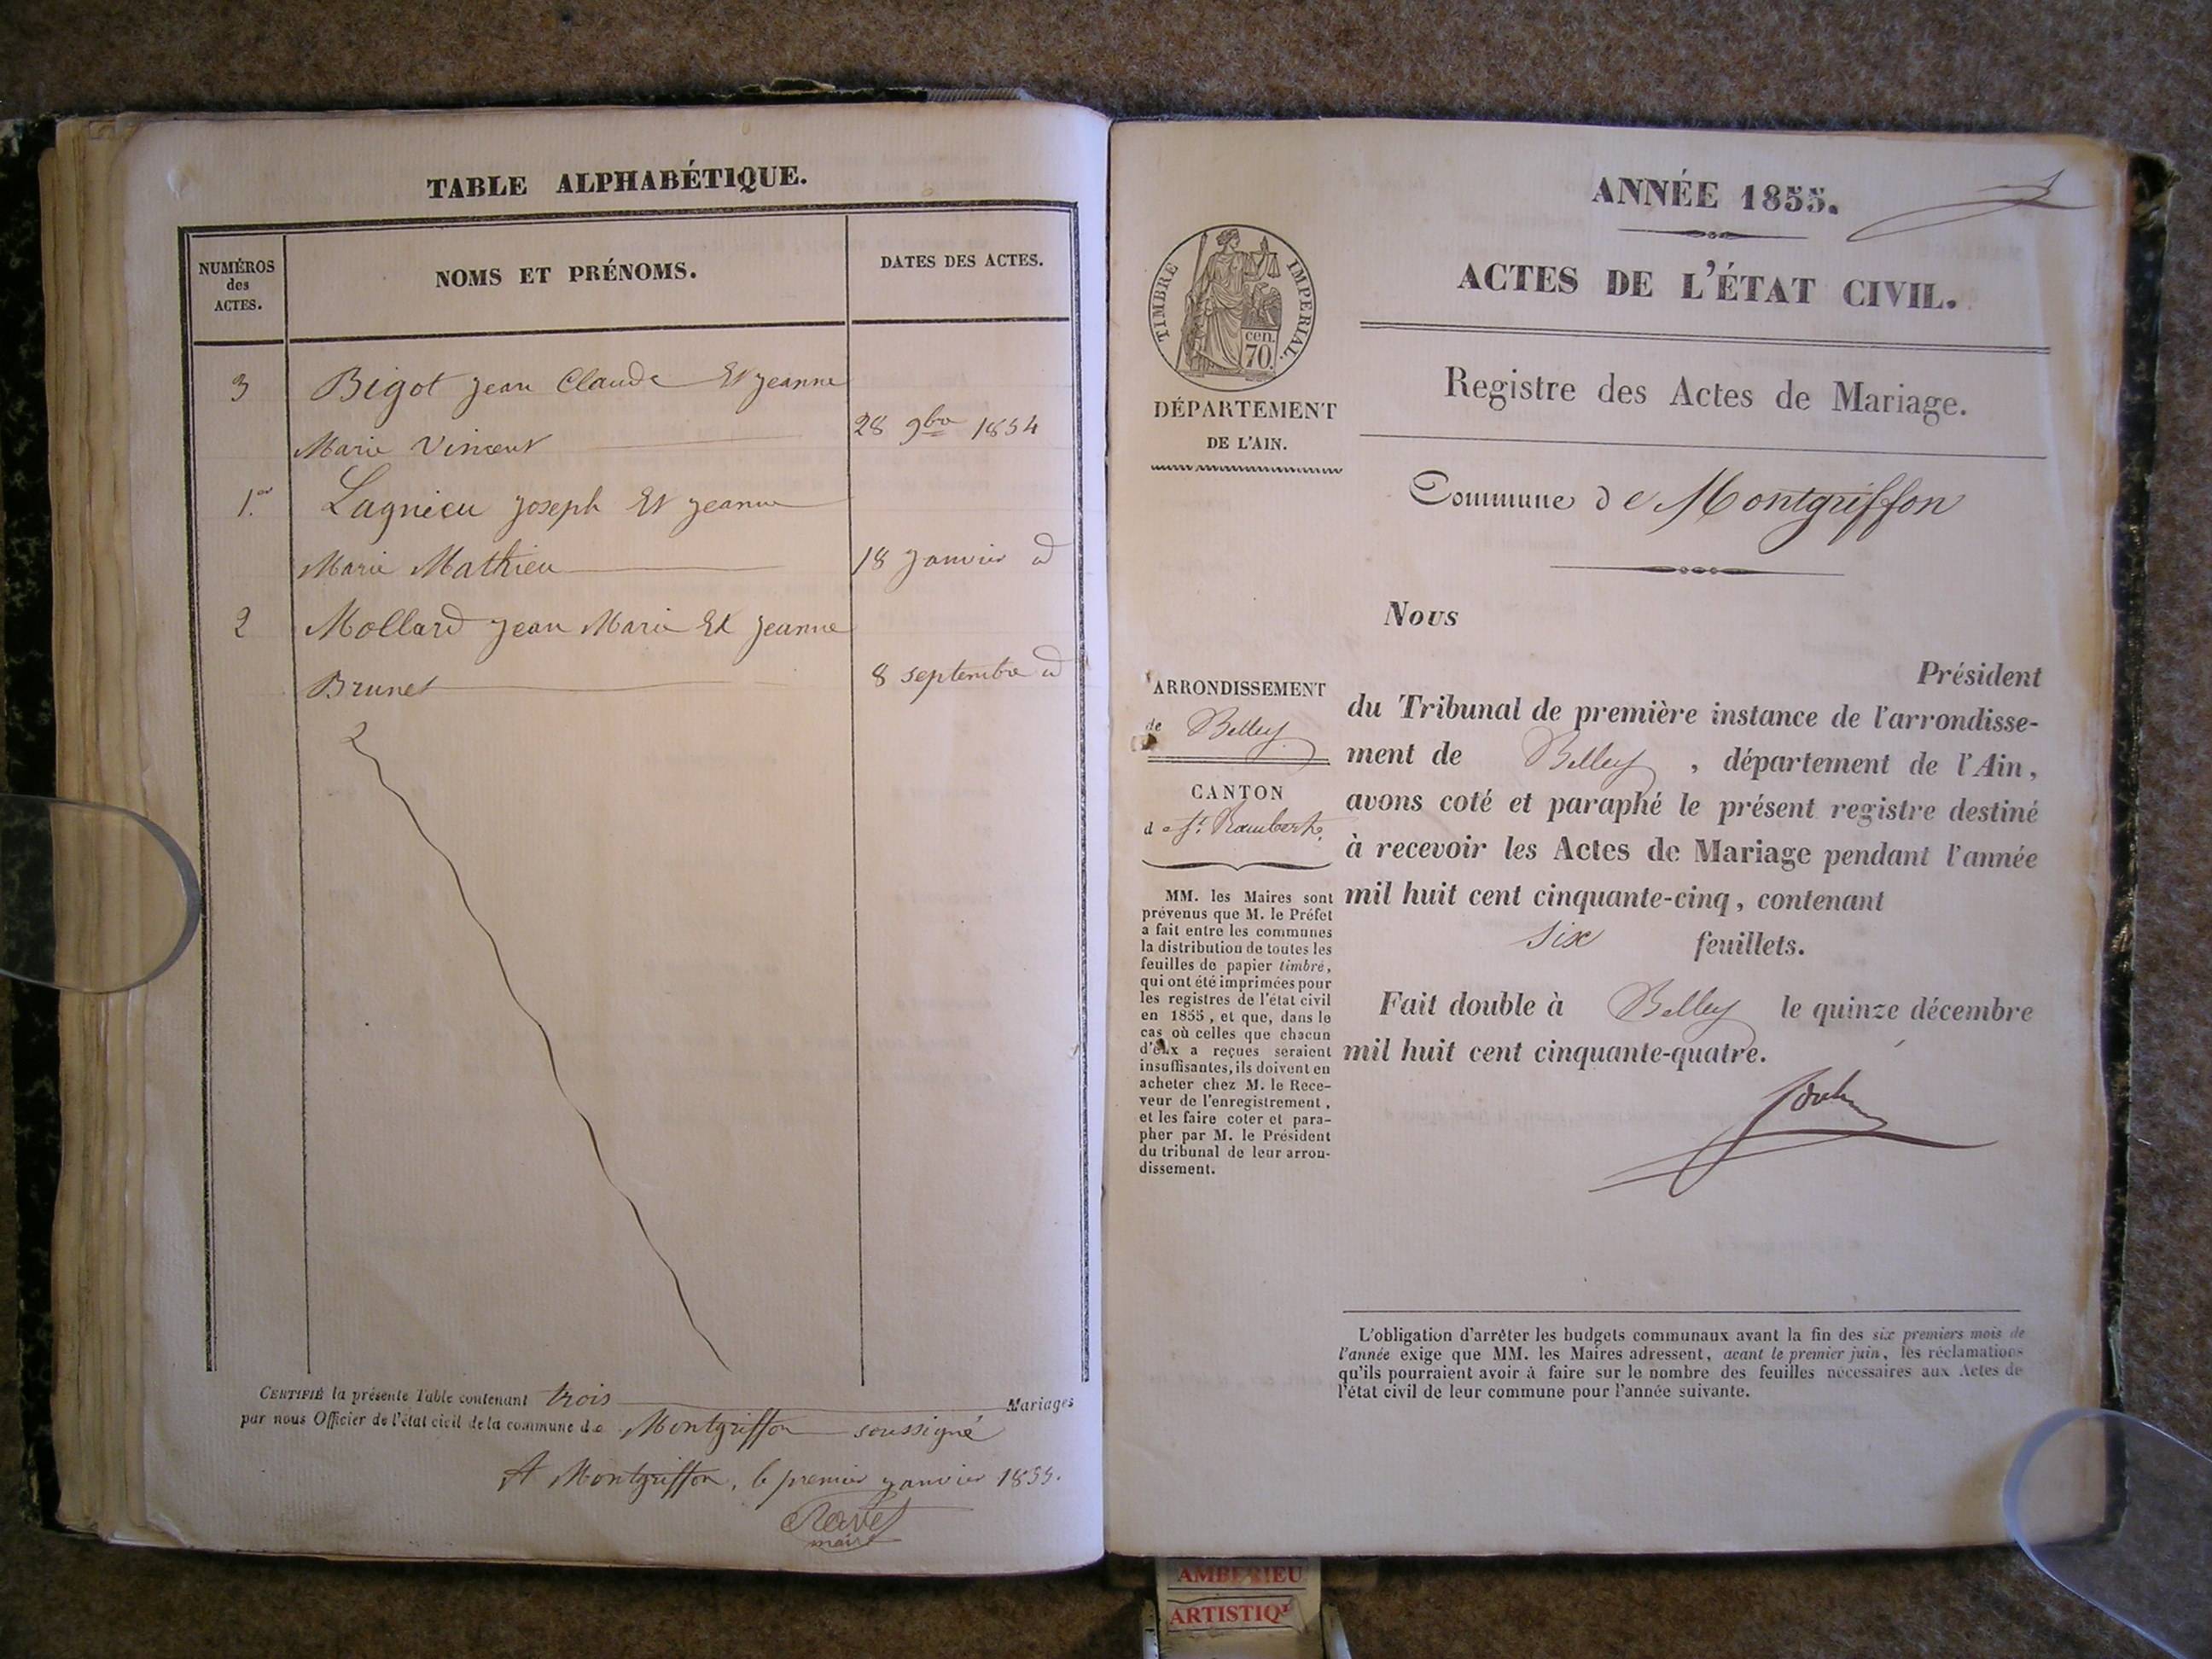 TABLE ALPHABÉTIQUE.
NUMÉROS
des
ACTES.
NOMS ET PRÉNOMS.
DATES DES ACTES.
3 Bigot jean Claude Et jeanne
Marie Vincent 28 9bre 1854
1.er Lagnieu joseph Et jeanne
Marie Mathieu 18 janvier id
2 Mollard jean Marie Et jeanne
Brunet 8 septembre id
CERTIFIÉ la présente Table contenant trois Mariages
par nous Officier de l'état civil de la commune de Montgriffon soussigné
A Montgriffon, le premier janvier 1855.
maire
ANNÉE 1855.
TIMBRE IMPERIAL.
cen.
70.
ACTES DE L'ÉTAT CIVIL.
Registre des Actes de Mariage.
DÉPARTEMENT
DE L'AIN.
Commune de Montgriffon
Nous
Président
du Tribunal de première instance de l'arrondisse-
ment de Belley, département de l'Ain,
avons coté et paraphé le présent registre destiné
à recevoir les Actes de Mariage pendant l'année
mil huit cent cinquante-cinq, contenant
six feuillets.
Fait double à Belley le quinze décembre
mil huit cent cinquante-quatre.
ARRONDISSEMENT
de Belley
CANTON
de St. Rambert.
MM. les Maires sont
prévenus que M. le Préfet
a fait entre les communes
la distribution de toutes les
feuilles de papier timbré,
qui ont été imprimées pour
les registres de l'état civil
en 1855, et que, dans le
cas où celles que chacun
d'eux a reçues seraient
insuffisantes, ils doivent en
acheter chez M. le Rece-
veur de l'enregistrement,
et les faire coter et para-
pher par M. le Président
du tribunal de leur arron-
dissement.
L'obligation d'arrêter les budgets communaux avant la fin des six premiers mois de
l'année exige que MM. les Maires adressent, avant le premier juin, les réclamations
qu'ils pourraient avoir à faire sur le nombre des feuilles nécessaires aux Actes de
l'état civil de leur commune pour l'année suivante.
AMBERIEU
ARTISTIQ